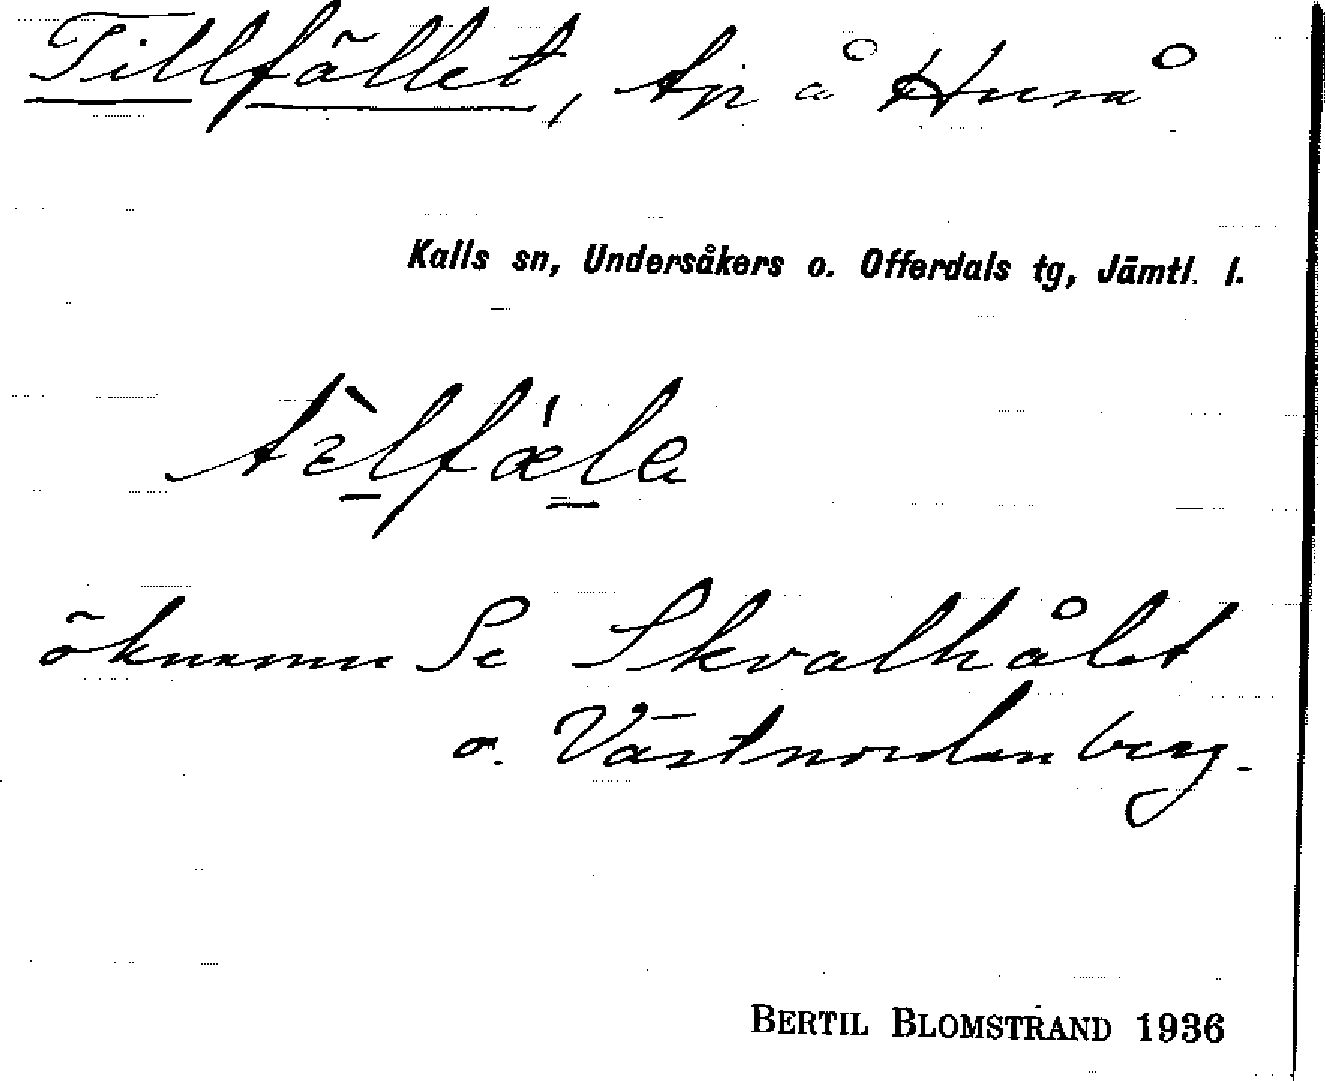 Tillfället, tp å Huså
Kalls sn, Undersåkers o. Offerdals tg, Jämtl. l.
tèlfæ̀la
öknamn Se Skvalhålet
o. Västnordenberg.
BERTIL BLOMSTRAND 1936